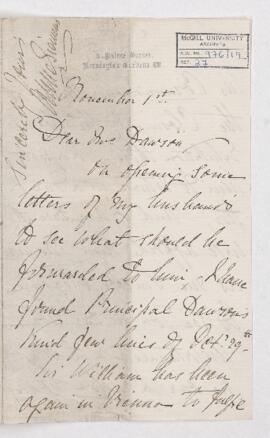 McGILL UNIVERSITY
ARCHIVES
ACC. NO. 976/19
REF. 27
Palace Garden
Kensington Gardens W.
November 1st.
Dear Mrs Dawson,
On opening some
letters of my husband's
to see what should be
forwarded to him, I have
found Principal Dawson's
kind few lines of Oct. 29th
Sir William has been
again in Vienna to
Sincerely yours